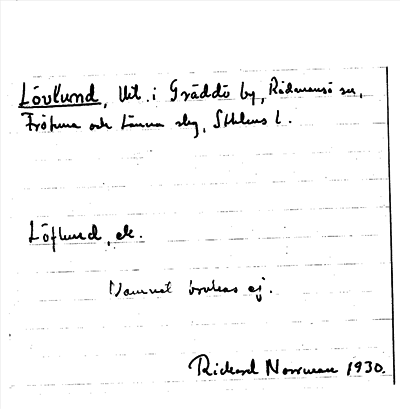 Lövlund, Utl. i Gräddö by, Rådmansö sn,
Frötuna och Länna slg, Sthlms l.
Löflund, ek.
Namnet brukas ej.
Richard Norrman 1930.